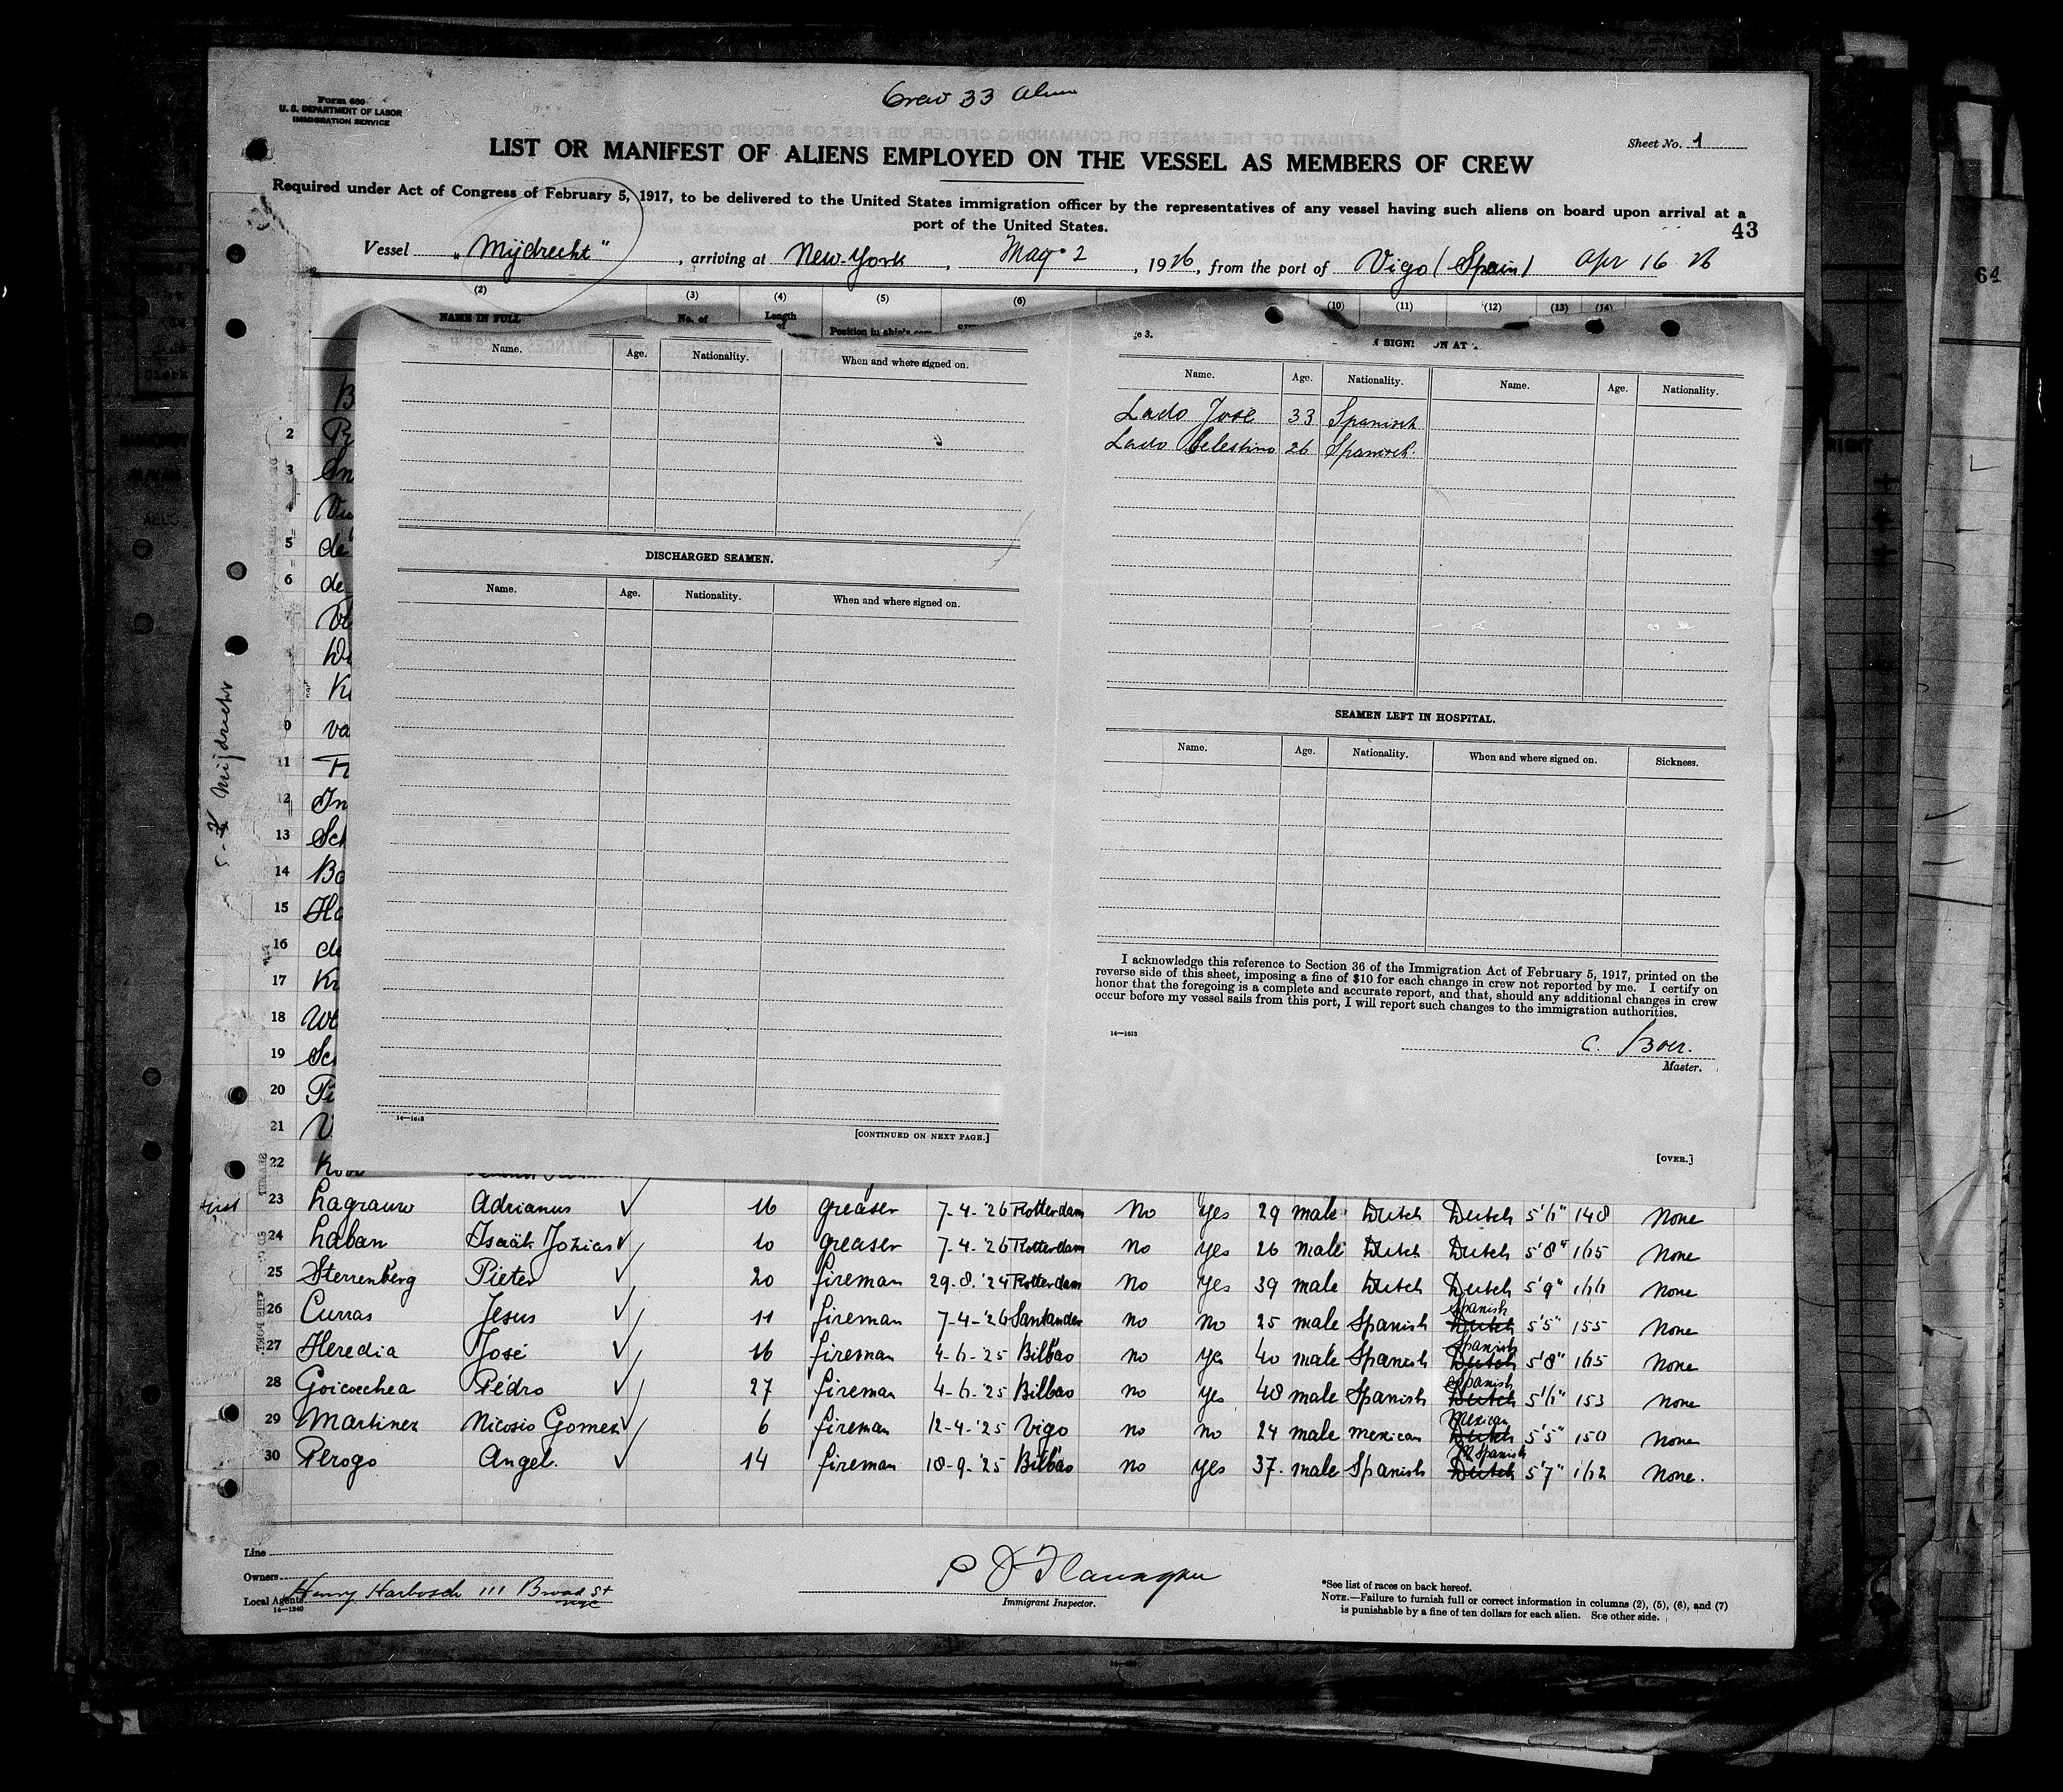 Form 680
U. S. DEPARTMENT OF LABOR
IMMIGRATION SERVICE
Crew 33 Alien
Sheet No. 1
LIST OR MANIFEST OF ALIENS EMPLOYED ON THE VESSEL AS MEMBERS OF CREW
Required under Act of Congress of February 5, 1917, to be delivered to the United States immigration officer by the representatives of any vessel having such aliens on board upon arrival at a
port of the United States.
43
Vessel "Mijdrecht", arriving at New-York, May 2, 1926, from the port of Vigo (Spain) Apr 16 26
64
(2) (3) (4) (5) (6) (10) (11) (12) (13) (14)
NAME IN FULL No. of Length of Position in ship's com
Name. Age. Nationality. When and where signed on.
Name. Age. Nationality. Name. Age. Nationality.
Lado José 33 Spanisch
Lado Celestino 26 Spanisch.
DISCHARGED SEAMEN.
Name. Age. Nationality. When and where signed on.
SEAMEN LEFT IN HOSPITAL.
Name. Age. Nationality. When and where signed on. Sickness.
I acknowledge this reference to Section 36 of the Immigration Act of February 5, 1917, printed on the
reverse side of this sheet, imposing a fine of $10 for each change in crew not reported by me. I certify on
honor that the foregoing is a complete and accurate report, and that, should any additional changes in crew
occur before my vessel sails from this port, I will report such changes to the immigration authorities.
14—1613
C. Boer.
Master.
14—1613
[CONTINUED ON NEXT PAGE.]
[OVER.]
Mijdrecht
2
3
4
5 de
6 de
11
12
13
14
15
16
17
18
19
20
21
22
first 23 Lagrauw Adrianus ✓ 16 greaser 7-4-'26 Rotterdam No Yes 29 male Dutch Dutch 5'6" 148 None
24 Laban Isaäk Jozias ✓ 10 greaser 7-4-'26 Rotterdam No Yes 26 male Dutch Dutch 5'8" 165 None
25 Sterrenberg Pieter ✓ 20 fireman 29-8-'24 Rotterdam No Yes 39 male Dutch Dutch 5'9" 166 None
26 Curras Jesus ✓ 11 fireman 7-4-'26 Santander no No 25 male Spanish Dutch Spanish 5'5" 155 None
27 Heredia José ✓ 16 fireman 4-6-'25 Bilbao no Yes 40 male Spanish Dutch Spanish 5'8" 165 None
28 Goicoechea Pédro ✓ 27 fireman 4-6-'25 Bilbao no Yes 48 male Spanish Dutch Spanish 5'6" 153 None
29 Martinez Nicosio Gomez ✓ 6 fireman 12-4-'25 Vigo no no 24 male mexican Dutch Mexican 5'5" 150 None
30 Perogo Angel. ✓ 14 fireman 18-9-'25 Bilbao no yes 37. male Spanish Dutch Spanish 5'7" 162 None.
Line
Owners
Local Agents Henry Harbosch 111 Broad St
nyc
14—1240
P J Flanagan
Immigrant Inspector.
*See list of races on back hereof.
NOTE.—Failure to furnish full or correct information in columns (2), (5), (6), and (7)
is punishable by a fine of ten dollars for each alien. See other side.